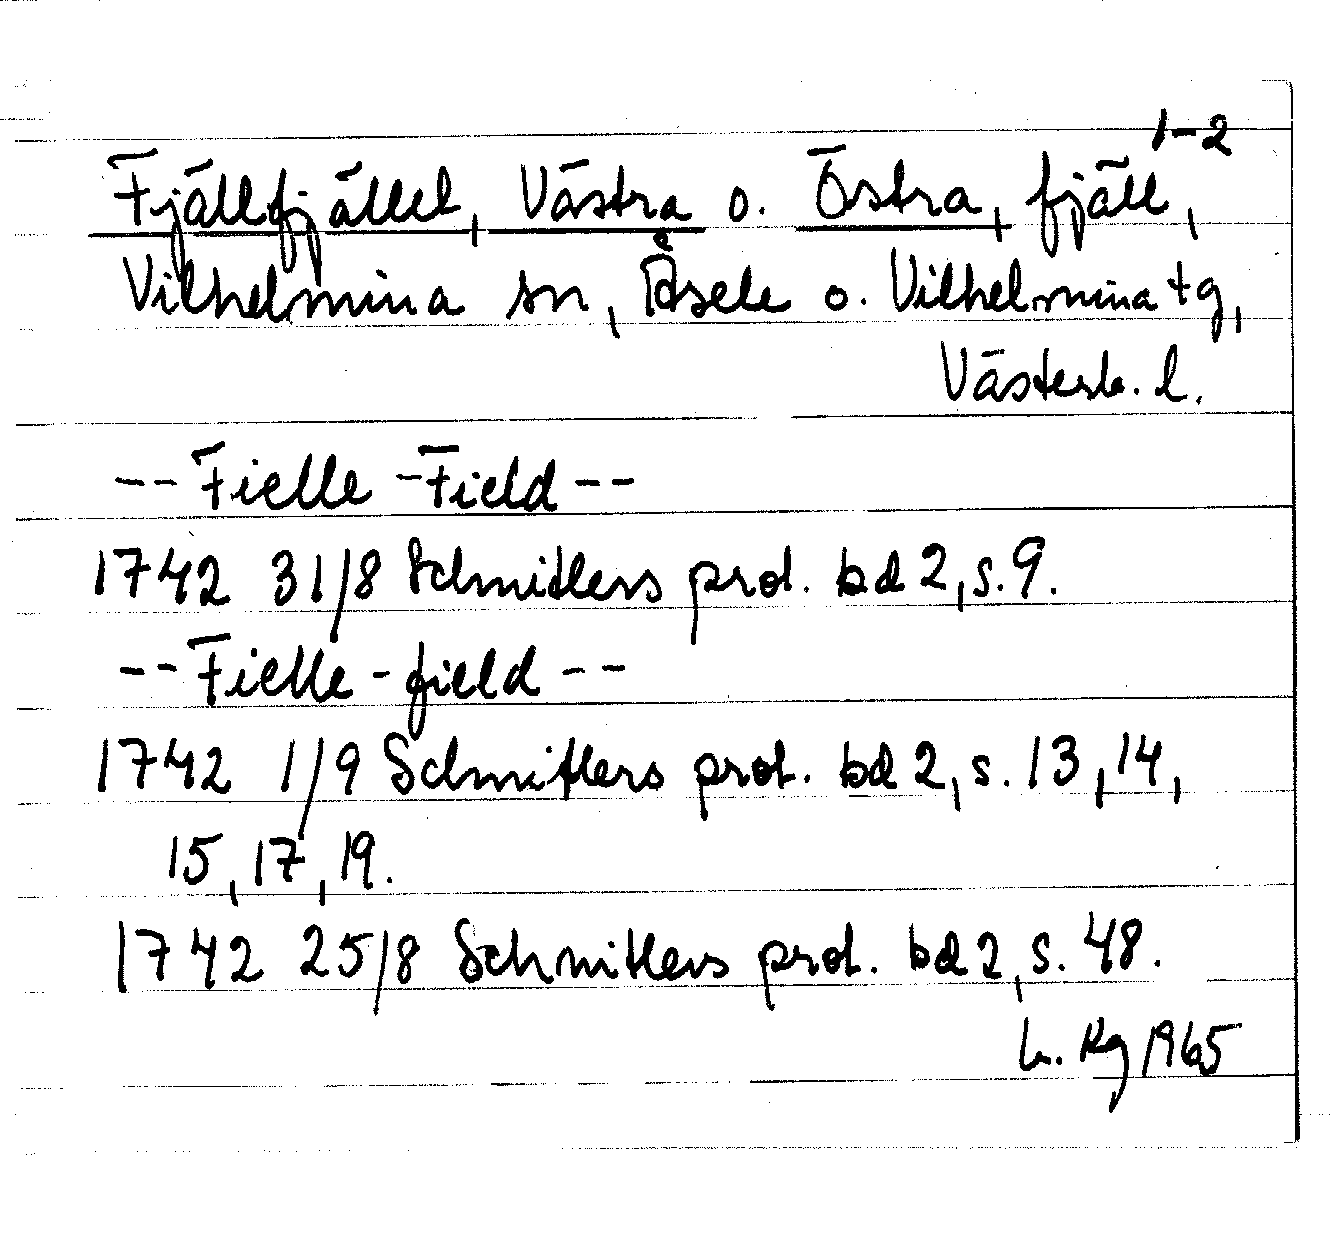 1-2
Fjällfjället, Västra o. Östra, fjäll,
Vilhelmina sn, Åsele o. Vilhelmina tg,
Västerb. l.
-- Fielle-Field --
1742 31/8 Schnitlers prot. bd 2, s. 9.
-- Fielle-field --
1742 1/9 Schnitlers prot. bd 2, s. 13, 14,
15, 17, 19.
1742 25/8 Schnitlers prot. bd 2, s. 48.
Kg 1965